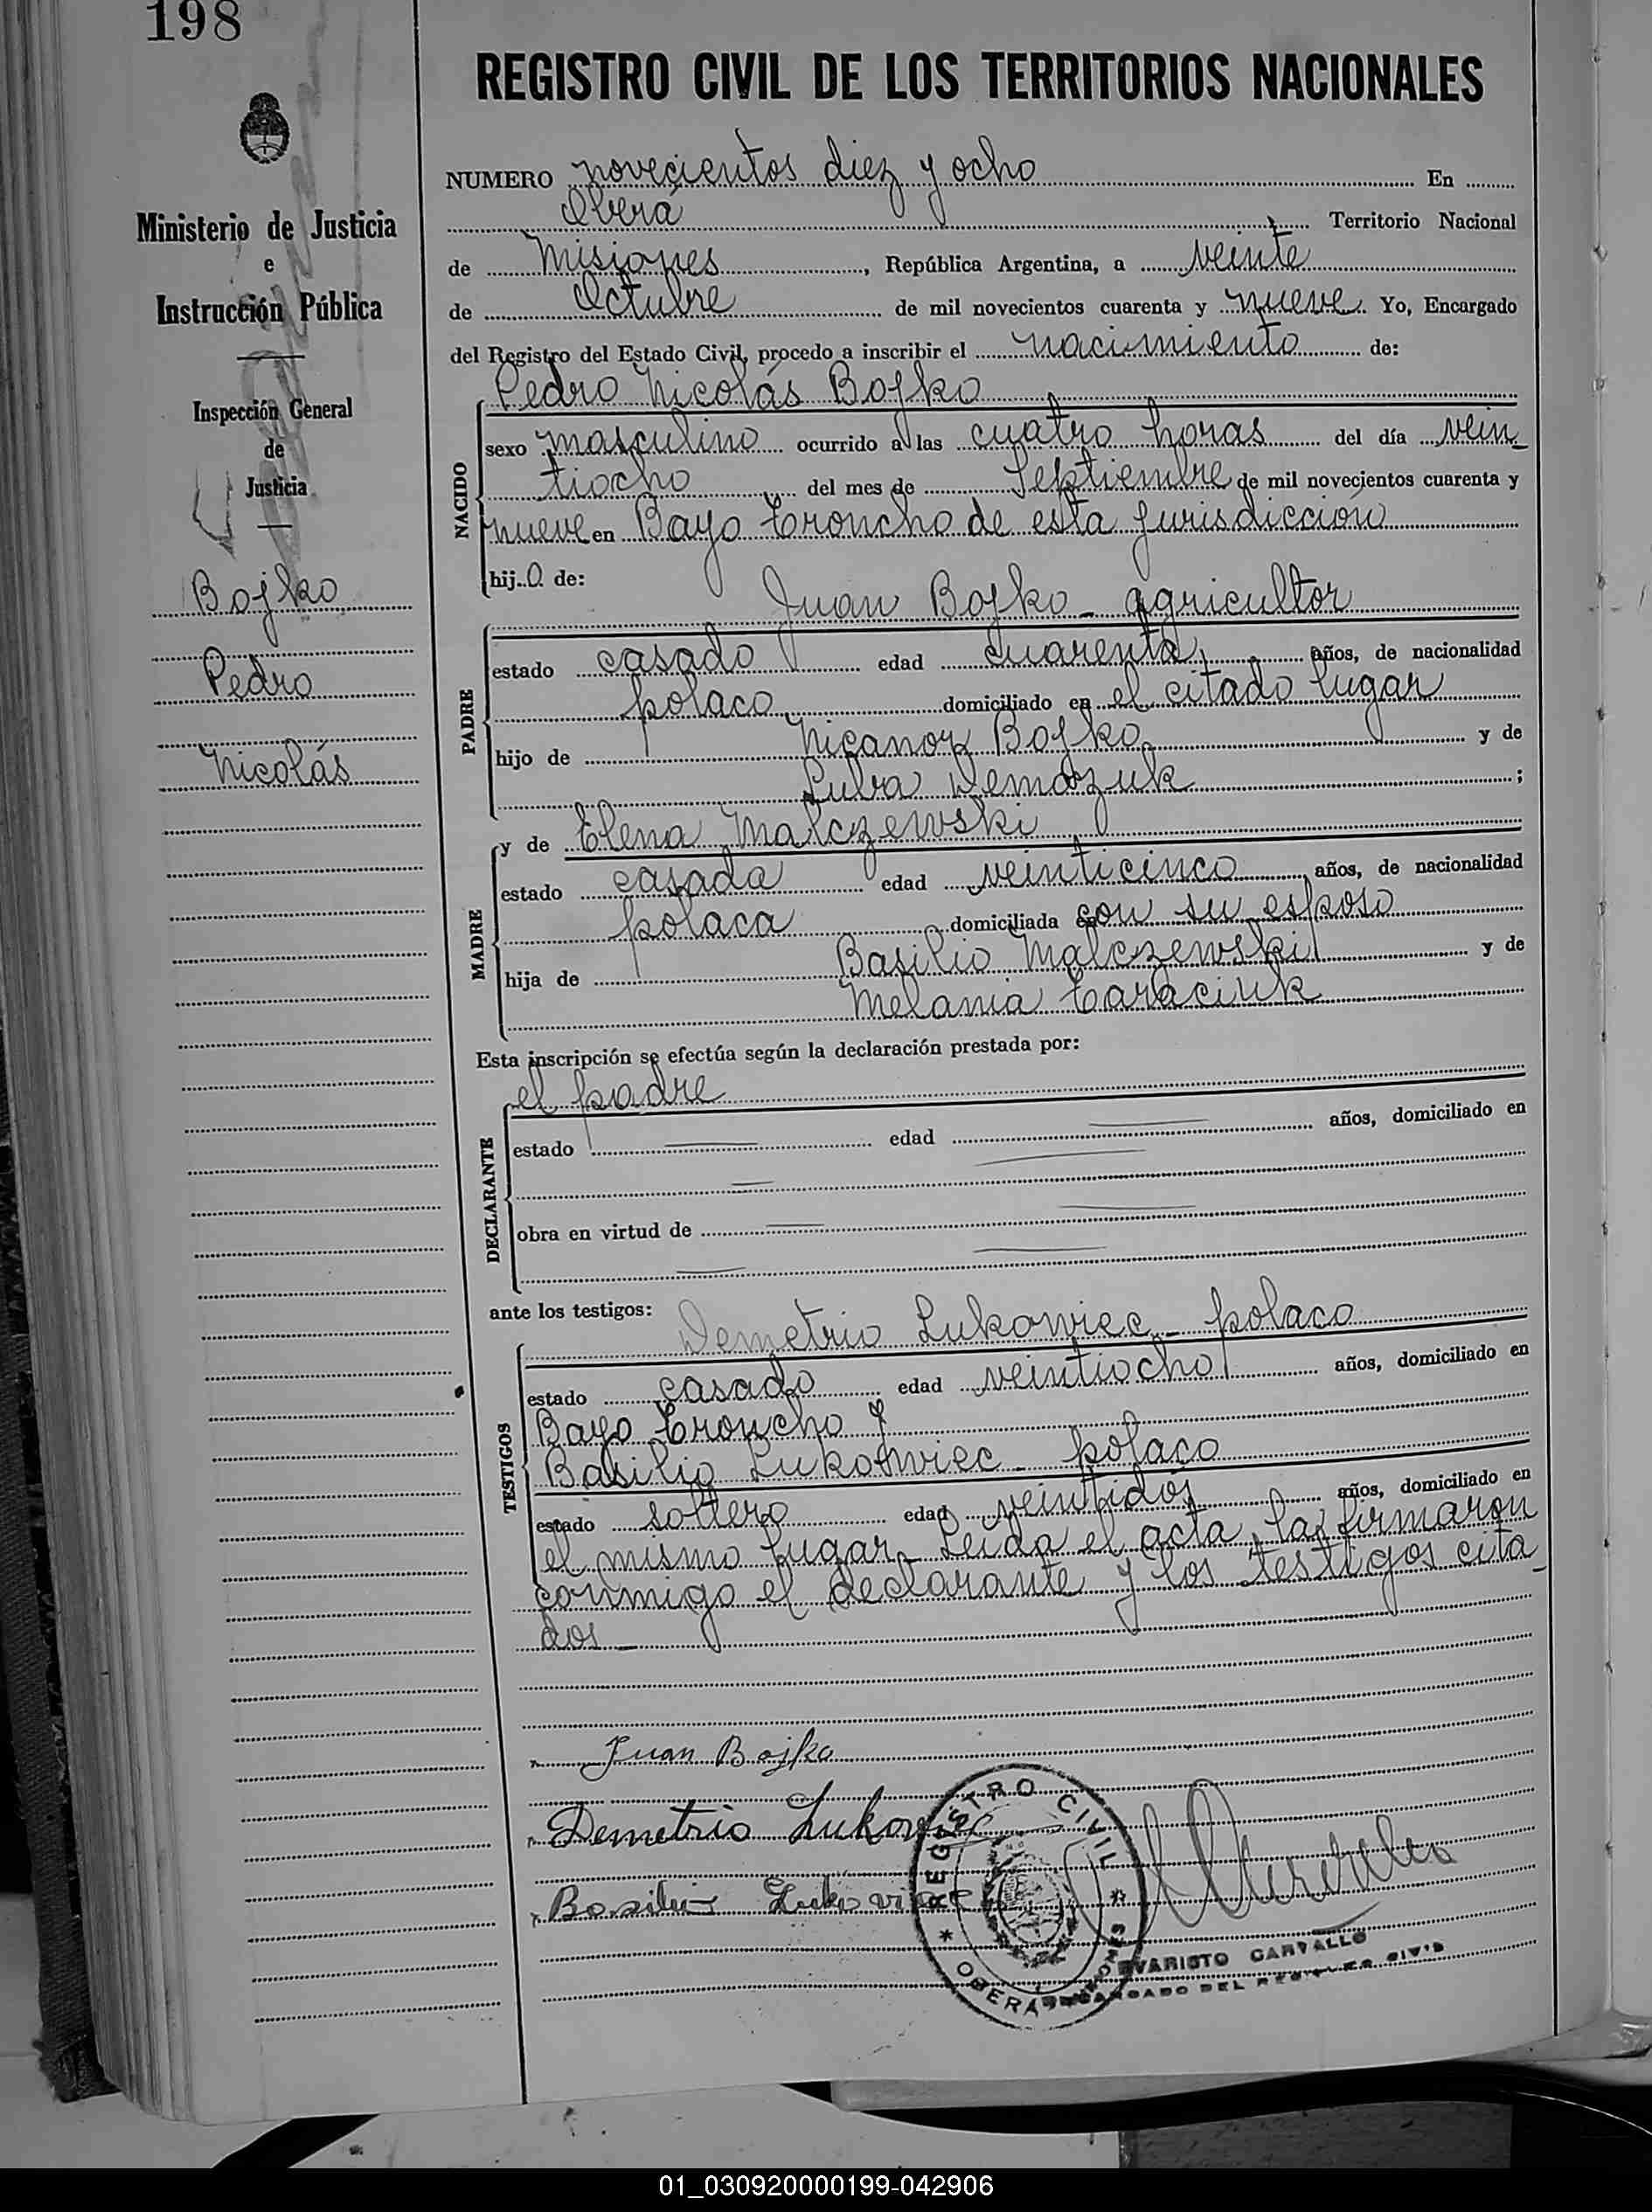 198
REGISTRO CIVIL DE LOS TERRITORIOS NACIONALES
Ministerio de Justicia
e
Instrucción Pública
Inspección General
de
Justicia
Bojko
Pedro
Nicolás
NUMERO novecientos diez y ocho En
Oberá Territorio Nacional
de Misiones, República Argentina, a veinte
de Octubre de mil novecientos cuarenta y nueve Yo, Encargado
del Registro del Estado Civil, procedo a inscribir el nacimiento de:
Pedro Nicolás Bojko
NACIDO
sexo masculino ocurrido a las cuatro horas del día vein-
tiocho del mes de Septiembre de mil novecientos cuarenta y
nueve en Bayo Troncho de esta jurisdicción
hijo de:
Juan Bojko - agricultor
PADRE
estado casado edad cuarenta años, de nacionalidad
polaco domiciliado en el citado lugar
hijo de Nicanor Bojko y de
Luba Demczuk;
y de Elena Malczewski
MADRE
estado casada edad veinticinco años, de nacionalidad
polaca domiciliada con su esposo
hija de Basilio Malczewski y de
Melania Taraciuk
Esta inscripción se efectúa según la declaración prestada por:
el padre
DECLARANTE
estado edad años, domiciliado en
obra en virtud de
ante los testigos:
Demetrio Lukowiec - polaco
TESTIGOS
estado casado edad veintiocho años, domiciliado en
Bayo Troncho y
Basilio Lukowiec - polaco
estado soltero edad veintidós años, domiciliado en
el mismo lugar - Leída el acta, la firmaron
conmigo el declarante y los testigos cita-
dos -
Juan Bojko
Demetrio Lukowiec
Basilio Lukowiec
REGISTRO CIVIL
OBERÁ MISIONES
EVARISTO CARVALLO
ENCARGADO DEL REGISTRO CIVIL
01_030920000199-042906